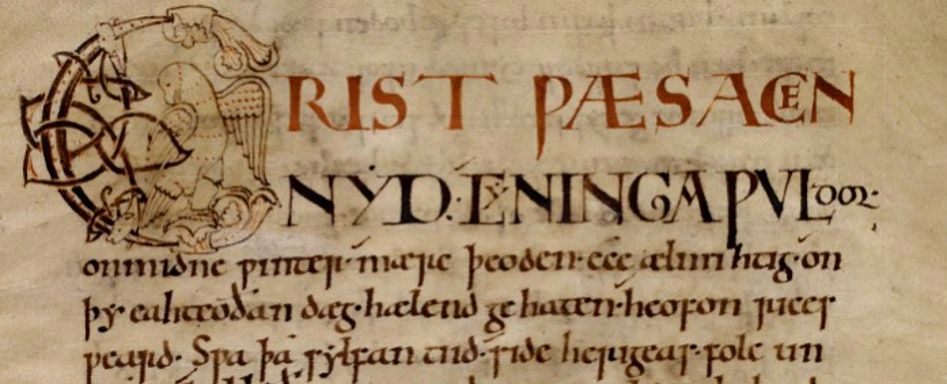 CRIST ǷÆS ACEN
NẎD· CẎNINGA ǷVLDOR·
onmidne ƿinter· mære þeoden· ece ælmihtig· on
þẏ eahteoðan dæg· hælend ge haten· heofon rices
ƿeard· Sƿa þa sẏlfan tiid· side herigeas· folc un